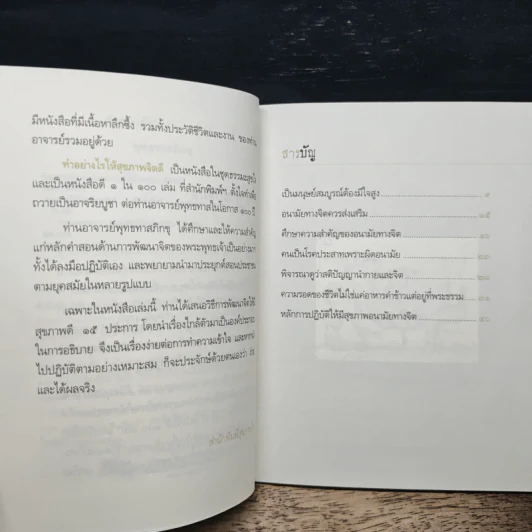 มีหนังสือที่มีเนื้อหาลึกซึ้ง รวมทั้งประวัติชีวิตและงาน ของท่าน
อาจารย์รวมอยู่ด้วย
ทำอย่างไรให้สุขภาพจิตดี เป็นหนังสือในชุดธรรมะสุขใจ
และเป็นหนังสือดี ๑ ใน ๑๐๐ เล่ม ที่สำนักพิมพ์ฯ ตั้งใจทำเพื่อ
ถวายเป็นอาจริยบูชา ต่อท่านอาจารย์พุทธทาสในโอกาส ๑๐๐ ปี
ท่านอาจารย์พุทธทาสภิกขุ ได้ศึกษาและให้ความสำคัญ
แก่หลักคำสอนด้านการพัฒนาจิตของพระพุทธเจ้าเป็นอย่างมาก
ทั้งได้ลงมือปฏิบัติเอง และพยายามนำมาประยุกต์สอนประชาชน
ตามยุคสมัยในหลายรูปแบบ
เฉพาะในหนังสือเล่มนี้ ท่านได้เสนอวิธีการพัฒนาจิตให้มี
สุขภาพดี ๑๕ ประการ โดยนำเรื่องใกล้ตัวมาเป็นองค์ประกอบ
ในการอธิบาย จึงเป็นเรื่องง่ายต่อการทำความเข้าใจ และหากนำ
ไปปฏิบัติตามอย่างเหมาะสม ก็จะประจักษ์ด้วยตนเองว่า ง่าย
และได้ผลจริง
สารบัญ
เป็นมนุษย์สมบูรณ์ต้องมีใจสูง
อนามัยทางจิตควรส่งเสริม ๑๕
ศึกษาความสำคัญของอนามัยทางจิต
คนเป็นโรคประสาทเพราะผิดอนามัย
พิจารณาดูว่าสติปัญญานำกายและจิต
ความรอดของชีวิตไม่ใช่แค่อาหารคำข้าวแต่อยู่ที่พระธรรม
หลักการปฏิบัติให้มีสุขภาพอนามัยทางจิต